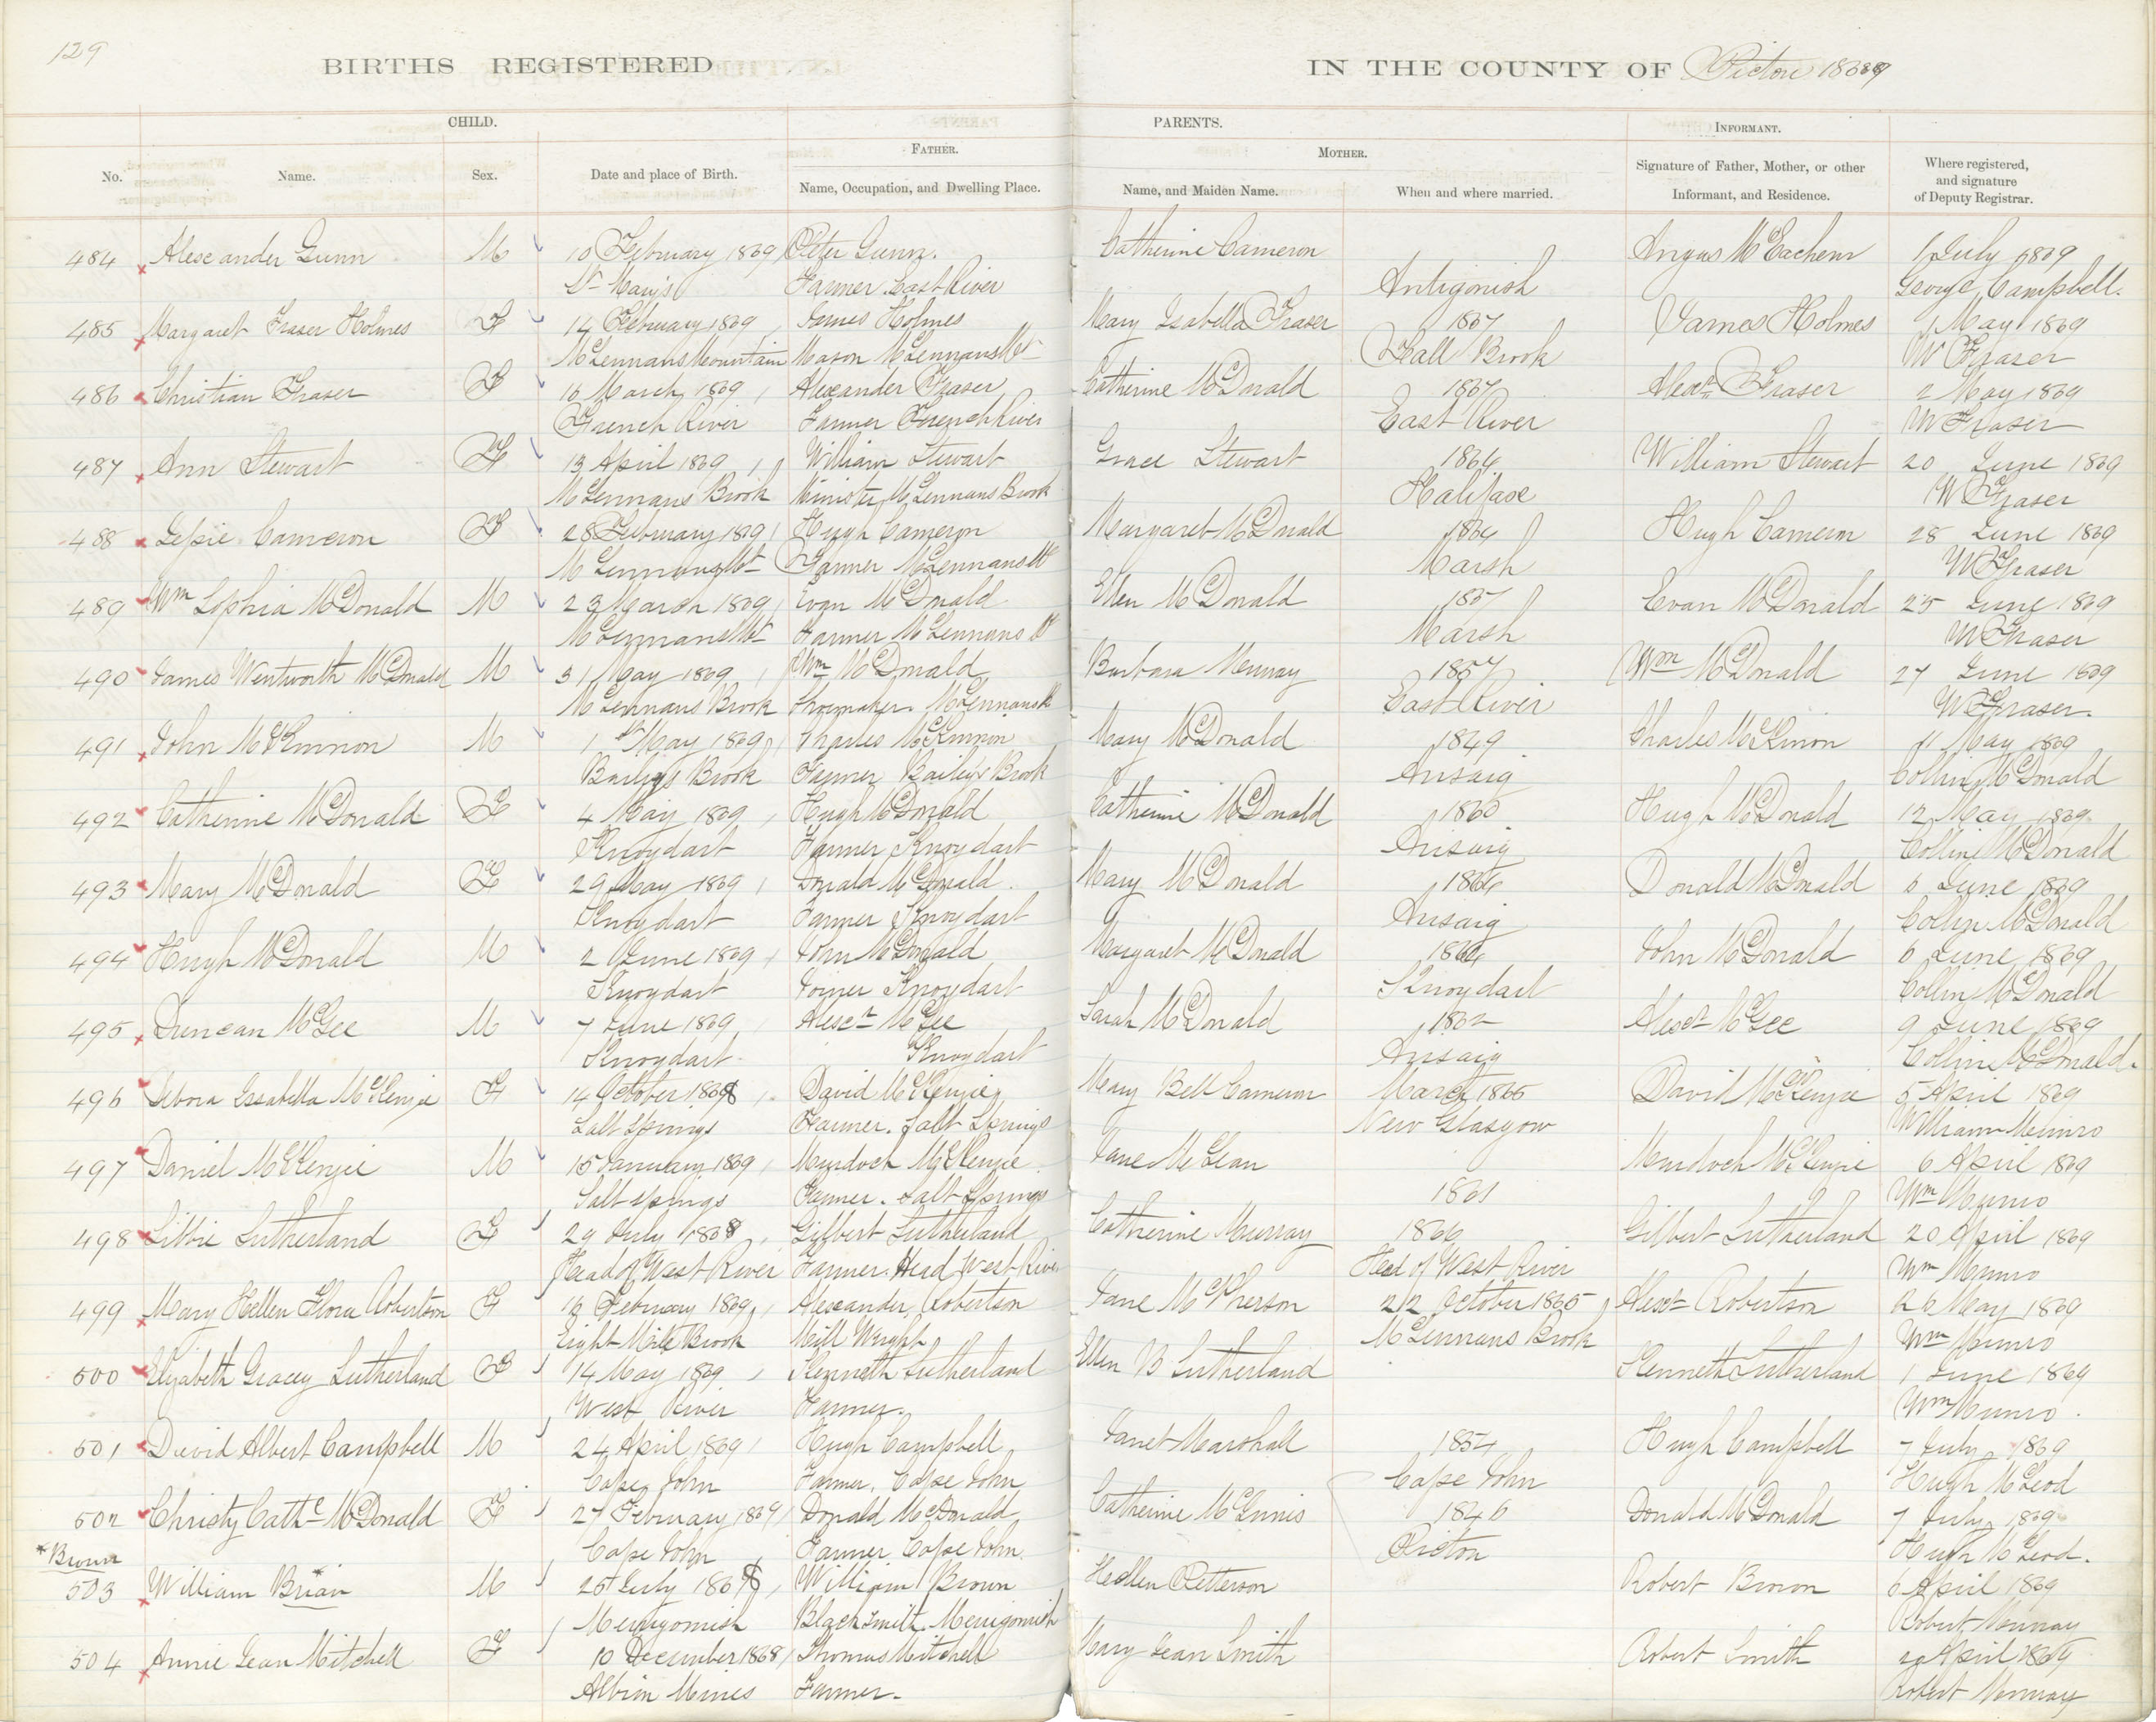 129
BIRTHS REGISTERED IN THE COUNTY OF Pictou 1869
CHILD. PARENTS. INFORMANT.
FATHER. MOTHER.
No. Name. Sex. Date and place of Birth. Name, Occupation, and Dwelling Place. Name, and Maiden Name. When and where married. Signature of Father, Mother, or other Informant, and Residence. Where registered, and signature of Deputy Registrar.
484 Alexander Gunn M 10 February 1869 Peter Gunn. Catherine Cameron Angus McEachern 1 July 1869
St Mary's Farmer East River Antigonish George Campbell.
485 Margaret Fraser Holmes F 14 February 1869 James Holmes Mary Isabella Fraser 1867 James Holmes 1 May 1869
McLennans Mountain Mason McLennans Mt Fall Brook W Fraser
486 Christian Fraser F 16 March 1869 Alexander Fraser Catherine McDonald 1867 Alexr Fraser 2 May 1869
French River Farmer French River East River W Fraser
487 Ann Stewart F 13 April 1869 William Stewart Grace Stewart 1864 William Stewart 20 June 1869
McLennans Brook Minister McLennans Brook Halifax W Fraser
488 Jessie Cameron F 28 February 1869 Hugh Cameron Margaret McDonald 1864 Hugh Cameron 28 June 1869
McLennans Mt Farmer McLennans Mt Marsh W Fraser
489 Wm Sophia McDonald M 29 March 1869 Evan McDonald Ellen McDonald 1857 Evan McDonald 25 June 1869
McLennans Mt Farmer McLennans Mt Marsh W Fraser
490 James Wentworth McDonald M 31 May 1869 Wm McDonald Barbara Murray 1857 Wm McDonald 27 June 1869
McLennans Brook Shoemaker McLennans Bk East River W Fraser.
491 John McKinnon M 1st May 1869 Charles McKinnon Mary McDonald 1849 Charles McKinnon 11 May 1869
Baileys Brook Farmer Baileys Brook Arisaig Collin McDonald
492 Catherine McDonald F 4 May 1869 Hugh McDonald Catherine McDonald 1860 Hugh McDonald 12 May 1869
Knoydart Farmer Knoydart Arisaig Collin McDonald
493 Mary McDonald F 29 May 1869 Donald McDonald Mary McDonald 1864 Donald McDonald 6 June 1869
Knoydart Farmer Knoydart Arisaig Collin McDonald
494 Hugh McDonald M 2 June 1869 John McDonald Margaret McDonald 1864 John McDonald 6 June 1869
Knoydart Joiner Knoydart Knoydart Collin McDonald
495 Duncan McGee M 7 June 1869 Alexr McGee Sarah McDonald 1862 Alexr McGee 9 June 1869
Knoydart Knoydart Arisaig Collin McDonald.
496 Isabella McKenzie F 14 October 1868 David McKenzie Mary Bell Cameron March 1865 David McKenzie 5 April 1869
Salt Springs Farmer. Salt Springs New Glasgow William Munro
497 Daniel McKenzie M 15 January 1869 Murdoch McKenzie Jane McLean Murdoch McKenzie 6 April 1869
Salt Springs Farmer. Salt Springs 1861 Wm Munro
498 Libbie Sutherland F 29 July 1868 Gilbert Sutherland Catherine Murray 1866 Gilbert Sutherland 20 April 1869
Head of West River Farmer. Head West River Head of West River Wm Munro
499 Mary Hellen Flora Robertson F 13 February 1869 Alexander Robertson Jane McPherson 22 October 1865 Alexr Robertson 26 May 1869
Eight Mile Brook Mill Wright McLennans Brook Wm Munro
500 Elizabeth Gracey Sutherland F 14 May 1869 Kenneth Sutherland Ellen B Sutherland Kenneth Sutherland 1 June 1869
West River Farmer. Wm Munro.
501 David Albert Campbell M 24 April 1869 Hugh Campbell Janet Marshall 1854 Hugh Campbell 7 July 1869
Cape John Farmer, Cape John Cape John Hugh McLeod
502 Christy Cathe McDonald F 27 February 1869 Donald McDonald Catherine McGinnis 1846 Donald McDonald 7 July 1869
Cape John Farmer Cape John. Picton Hugh McLeod.
*Brown
503 William Brian* M 26 July 1868 William Brown Hellen Patterson Robert Brown 6 April 1869
Merigomish Blacksmith. Merigomish Robert Murray
504 Annie Jean Mitchell F 10 December 1868 Thomas Mitchell Mary Jean Smith Robert Smith April 1869
Albion Mines Farmer. Robert Murray